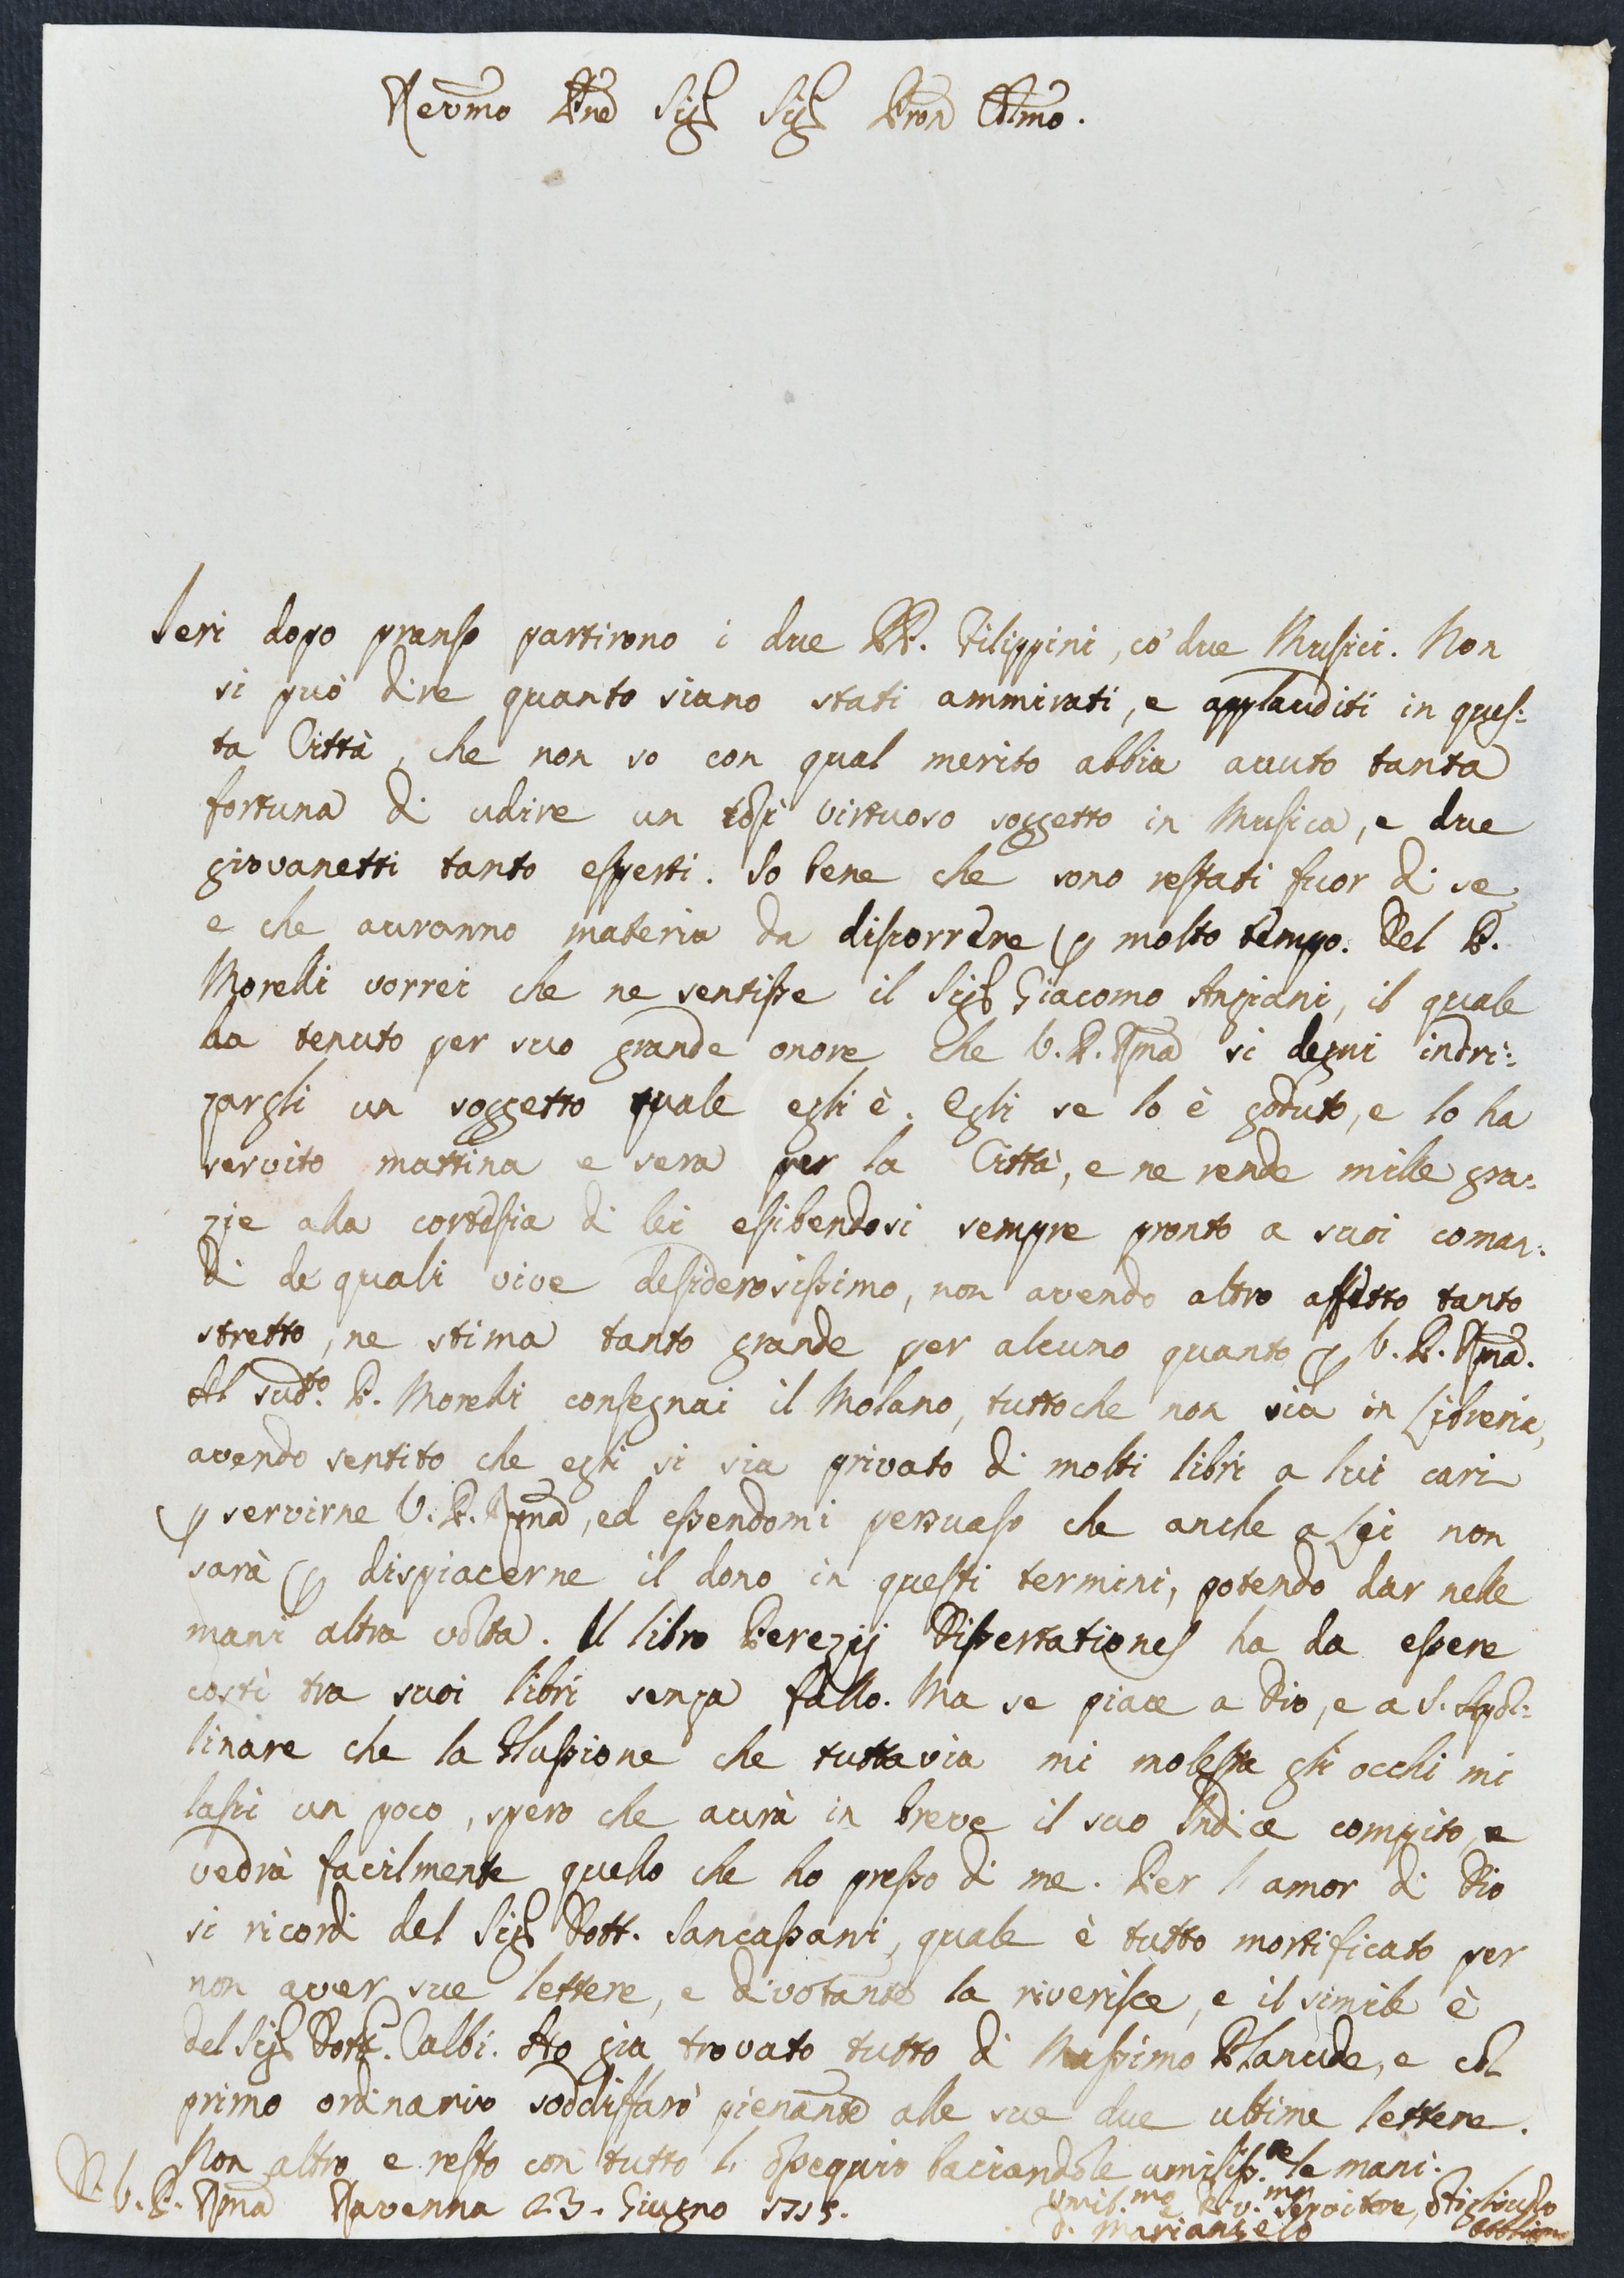 Revmo Pne Sig Sig Pron Colmo.
Ieri dopo pranso partirono i due PP. Filippini, co' due Musici. Non
si può dire quanto siano stati ammirati, e applauditi in ques:
ta Città, che non so con qual merito abbia avuto tanta
fortuna di udire un così virtuoso soggetto in Musica, e due
giovanetti tanto esperti. So bene che sono restati fuor di se,
e che avranno materia da discorrere p molto tempo. Del P.
Morelli vorrei che ne sentisse il Sig Giacomo Anziani, il quale
ha tenuto per suo grande onore che V. P. Rma si degni indri:
zargli un soggetto quale egli è. Egli se lo è goduto, e lo ha
servito mattina e sera per la Città, e ne rende mille gra:
zie alla cortesia di lei esibendosi sempre pronto a suoi coman:
di de quali vive desiderosissimo, non avendo altro affetto tanto
stretto, ne stima tanto grande per alcuno quanto p V. P. Rma.
Al sudto. P. Morelli consegnai il Molano, tuttoche non sia in Libreria,
avendo sentito che egli si sia privato di molti libri a lui cari
p servirne V. P. Rma, ed essendomi persuaso che anche a Lei non
sarà p dispiacerne il dono in questi termini, potendo dar nelle
mani altra volta. Il libro Perezij Dissertationes ha da essere
costì tra suoi libri senza fallo. Ma se piace a Dio, e a S. Apol:
linare che la Flussione che tuttavia mi molesta gli occhi mi
lasci un poco, spero che avrà in breve il suo Indice compito, e
vedrà facilmente quello che ho presso di me. Per l'amor di Dio
si ricordi del Sig Dott. Sancassani, quale è tutto mortificato per
non aver sue lettere, e divotante la riverisce, e il simile è
del Sig Dott. Calbi. Ho gia trovato tutto di Massimo Planude, e col
primo ordinario soddisfarò pienante alle sue due ultime lettere.
Non altro e resto con tutto l'ossequio baciandole umiliss.te le mani.
D. V. P. Rma Ravenna 23. Giugno 1715.
Umil.mo e Servitore,
D. Mariangelo